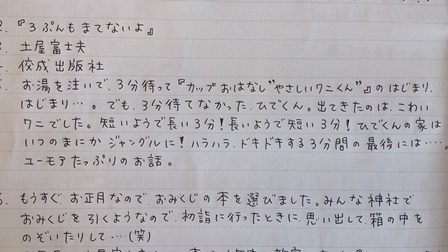 2. 『3ぷんもまてないよ』
土屋富士夫
4. 佼成出版社
お湯を注いで、3分待って『カップおはなし"やさしいワニくん"』のはじまり、
はじまり…。でも、3分待てなかった、ひでくん。出てきたのは、こわい
ワニでした。短いようで長い3分!長いようで短い3分!ひでくんの家は
いつのまにかジャングルに!ハラハラ、ドキドキする3分間の最後には……。
ユーモアたっぷりのお話。
もうすぐ、お正月なので、おみくじの本を選びました。みんな神社で
おみくじを引くようなので、初詣に行ったときに、思い出して、箱の中を
のぞいたりして…(笑)